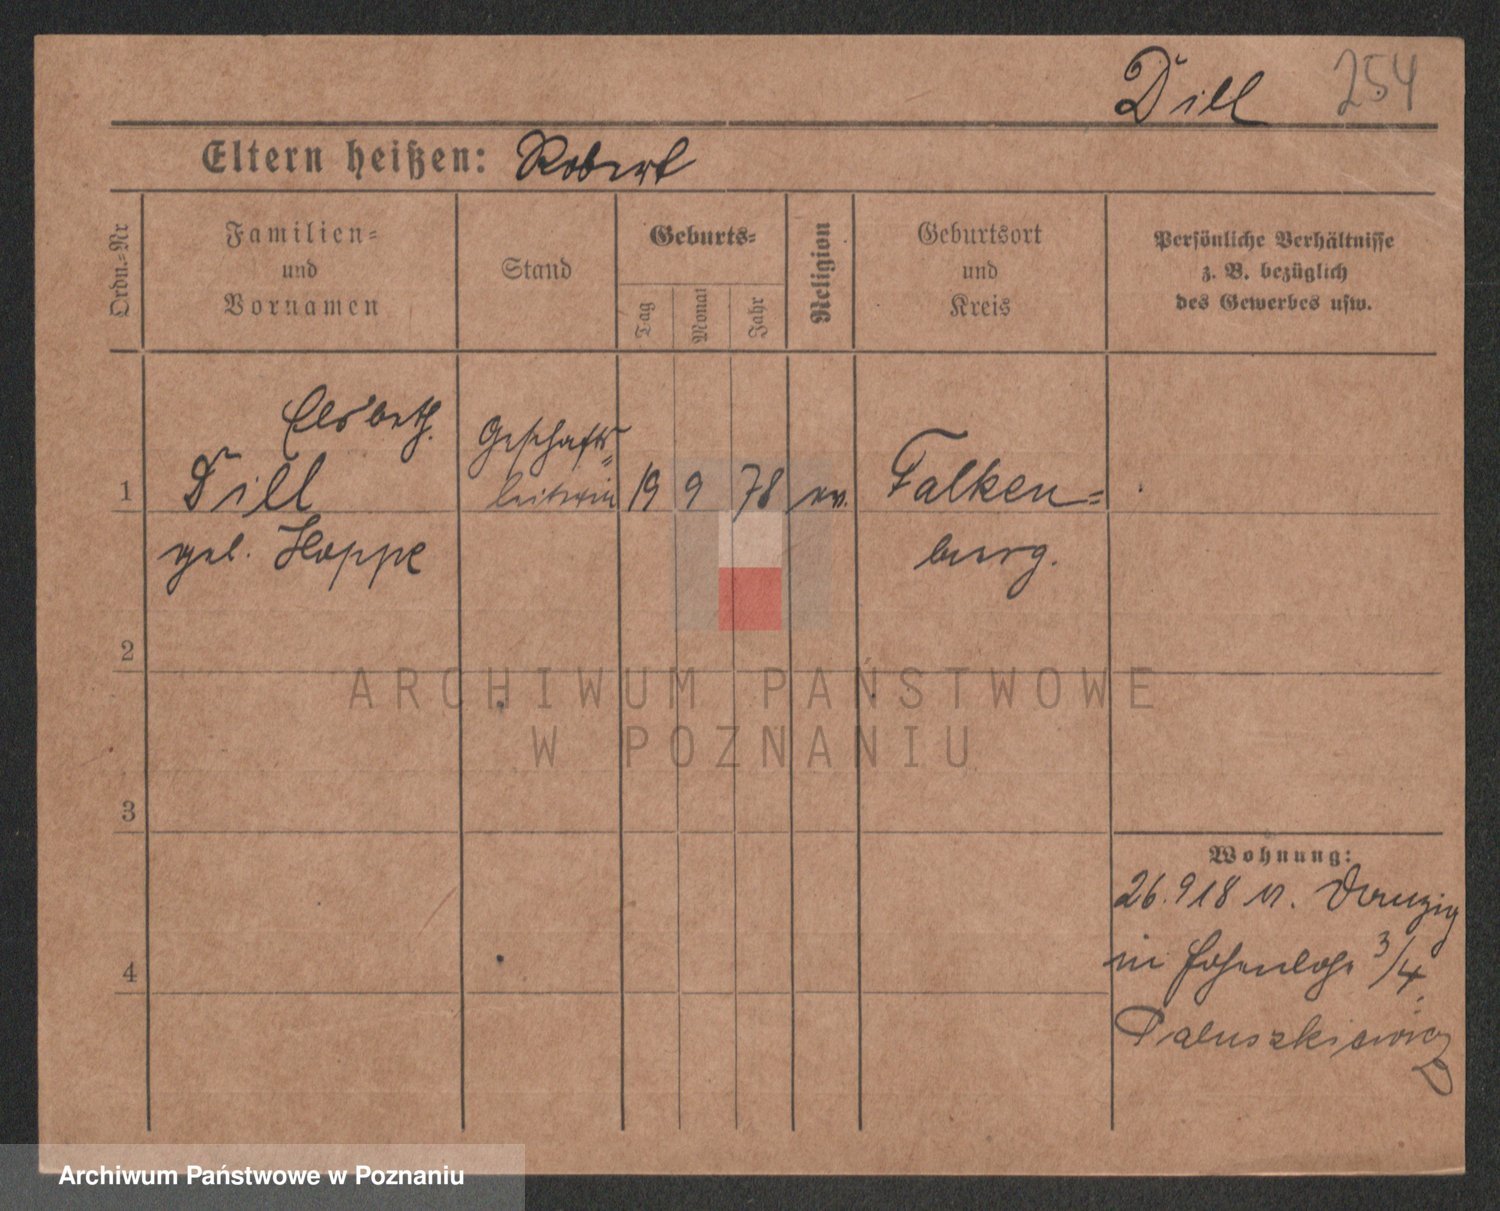 Dill 254
Eltern heißen: Robert
Ordn.=Nr
Familien=
und
Vornamen
Stand
Geburts=
Tag
Monat
Jahr
Religion
Geburtsort
und
Kreis
Persönliche Verhältnisse
z. B. bezüglich
des Gewerbes usw.
Elsbeth.
Geschäfts=
1 Dill leiterin 19 9 78 ev. Falken=
geb. Hoppe burg.
2
ARCHIWUM PAŃSTWOWE
W POZNANIU
3
Wohnung:
26.9 18 n. Danzig
in Hohenlohe 3/4.
4
Paluszkiewicz
Archiwum Państwowe w Poznaniu